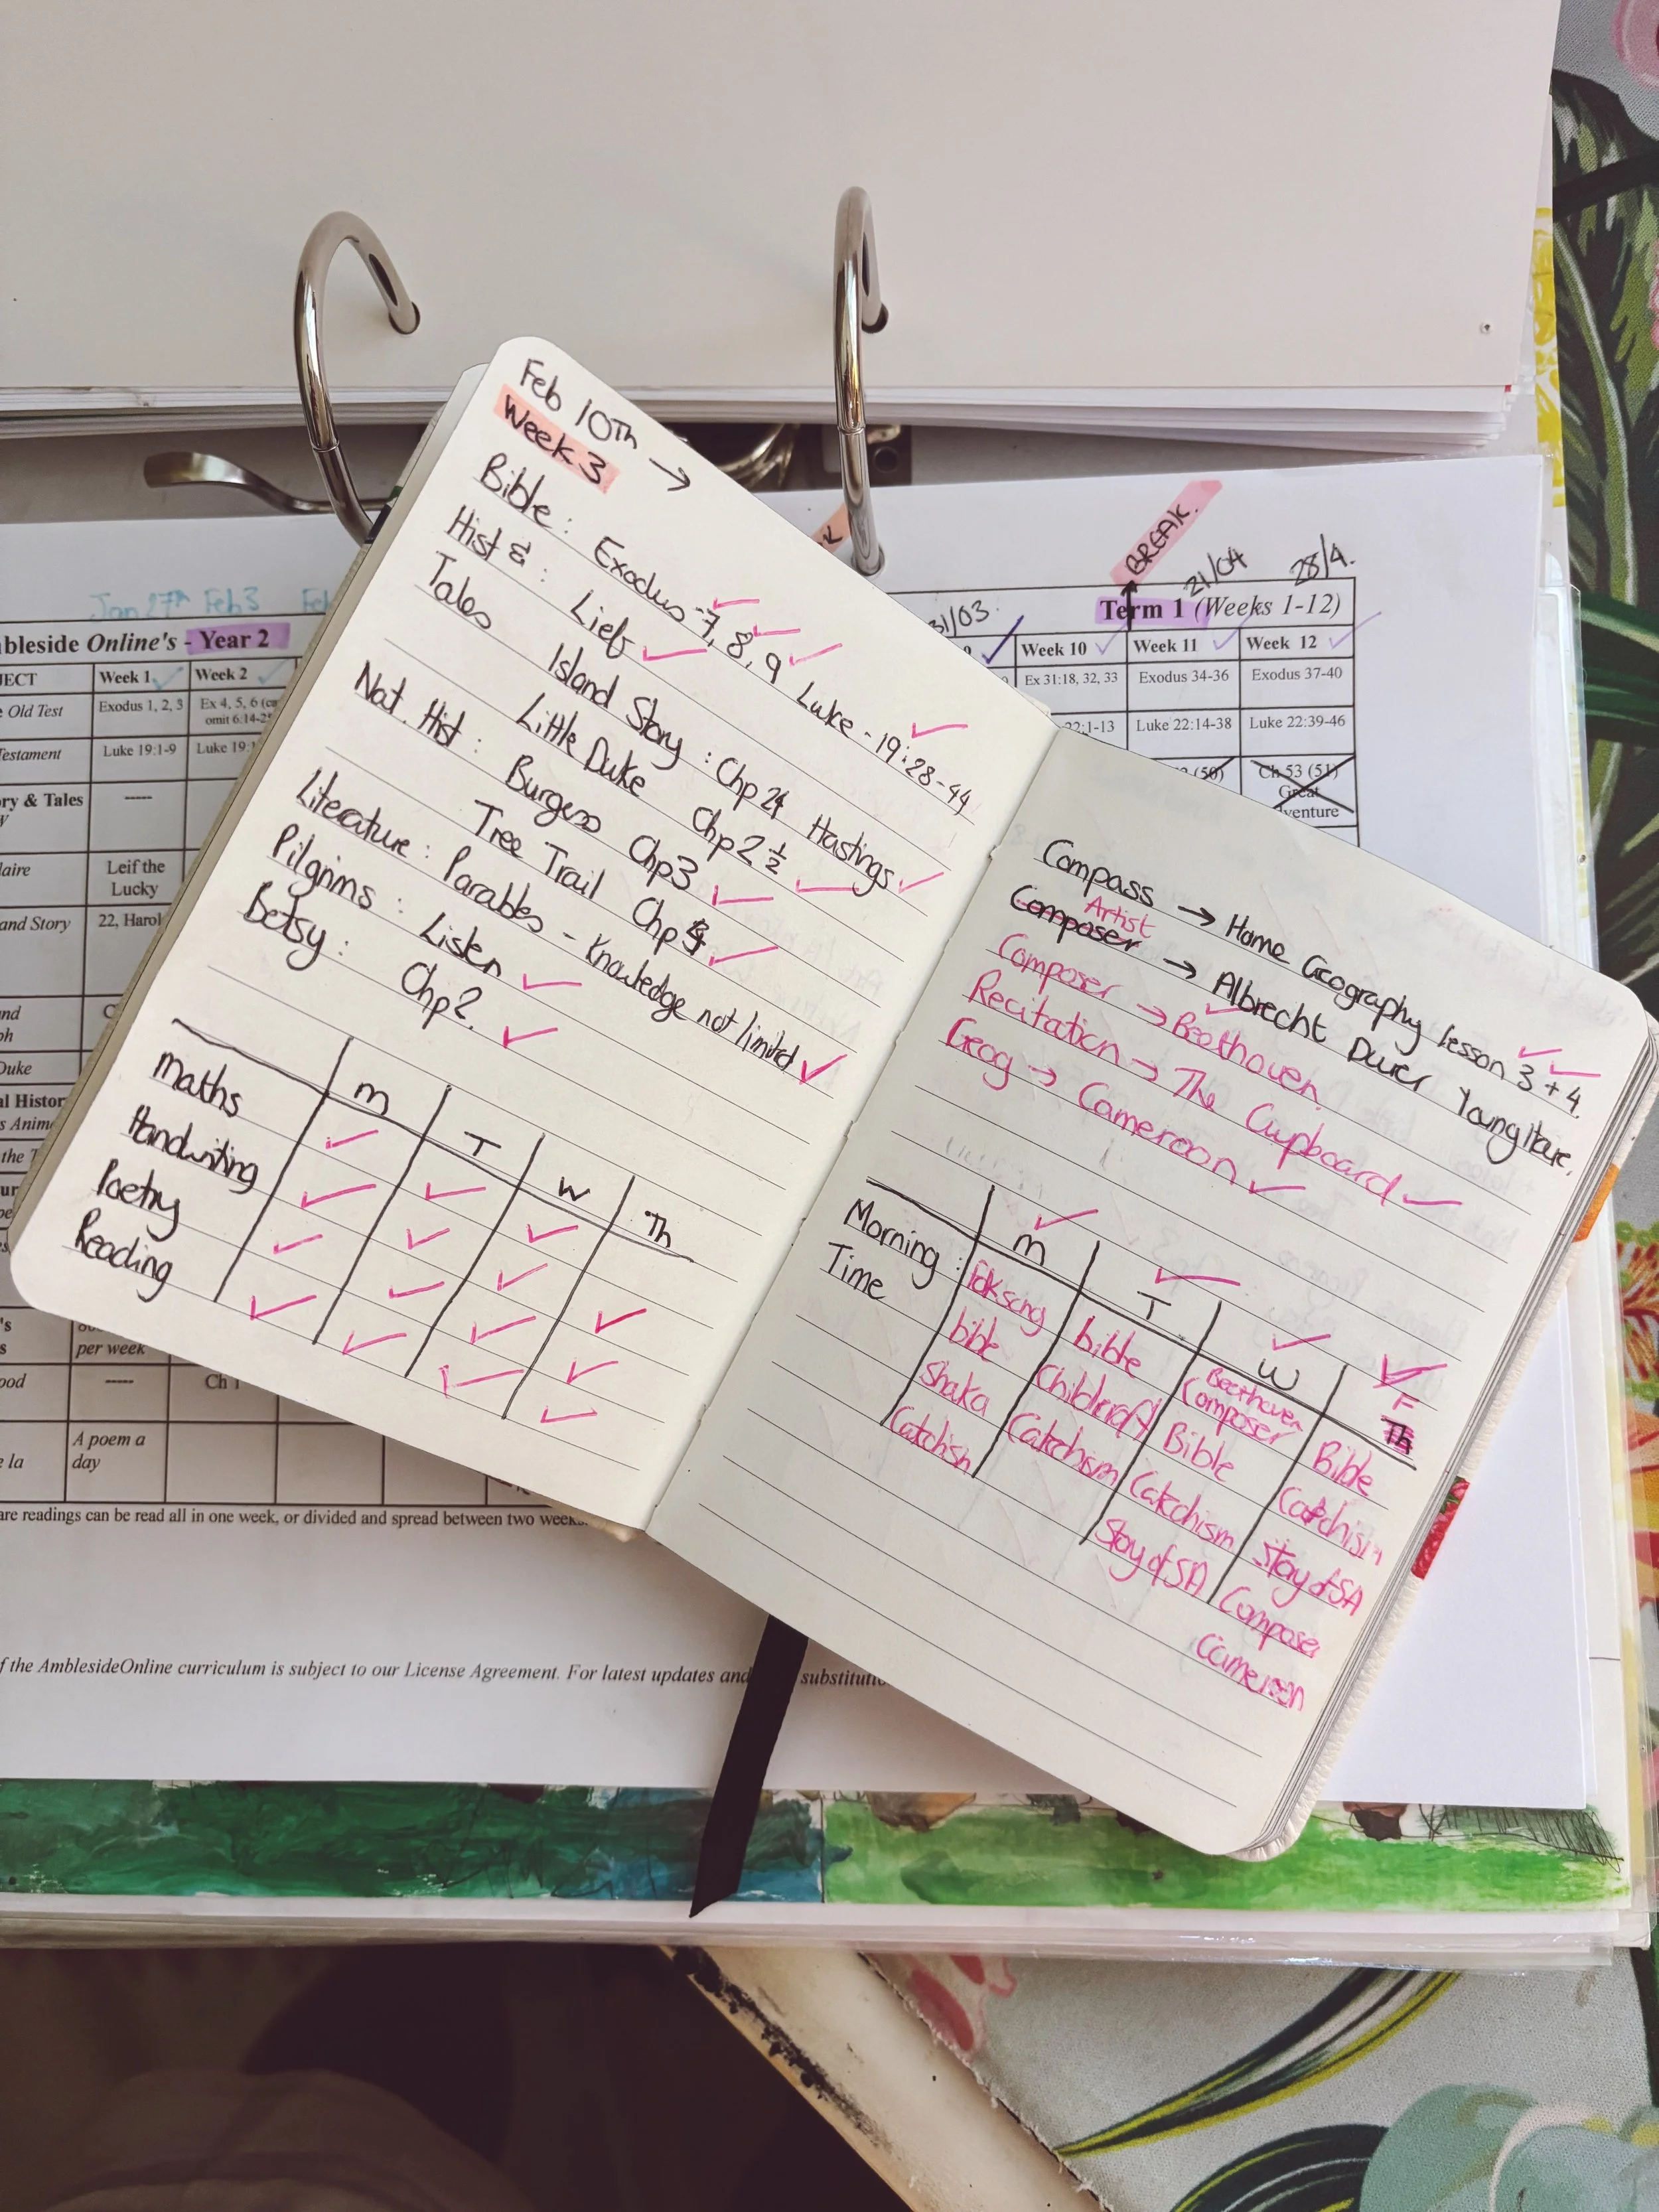 Feb 10Th →
Week 3
Bible: Exodus - 7, 8, 9 Luke - 19:28-44
Hist & : Lief
Tales Island Story: Chp 24 Hastings
Little Duke Chp 2 ½
Nat. Hist: Burgess Chp 3
Tree Trail Chp
Literature: Parables - Knowledge not limited
Pilgrims: Listen
Betsy: Chp 2.
M T W Th
Maths
Handwriting
Poetry
Reading
Compass → Home Geography lesson 3 + 4.
Artist
Composer → Albrecht Durer Young Hare.
Composer → Beethoven
Recitation → The Cupboard
Geog → Cameroon
M T W F
Th
Morning : Folksong bible Beethoven Composer Bible
Time bible Bible Catchism
Shaka Catechism Catechism Stoy of SA
Catchism Stoy of SA Composer
Cameroon
BREAK.
31/03. 21/04 28/4.
Term 1 (Weeks 1-12)
Week 10 Week 11 Week 12
Ex 31:18, 32, 33 Exodus 34-36 Exodus 37-40
22:1-13 Luke 22:14-38 Luke 22:39-46
(50) Ch 53 (51)
Great
venture
Jan 27th Feb 3 Feb
bleside Online's - Year 2
JECT Week 1 Week 2
Old Test Exodus 1, 2, 3 Ex 4, 5, 6
omit 6:14-2
estament Luke 19:1-9 Luke 19:
ry & Tales -----
laire Leif the
Lucky
and Story 22, Harol
Duke
al Histor
s Anim
the T
per week
ood ----- Ch 1
A poem a
e la day
are readings can be read all in one week, or divided and spread between two weeks.
f the AmblesideOnline curriculum is subject to our License Agreement. For latest updates and substituti